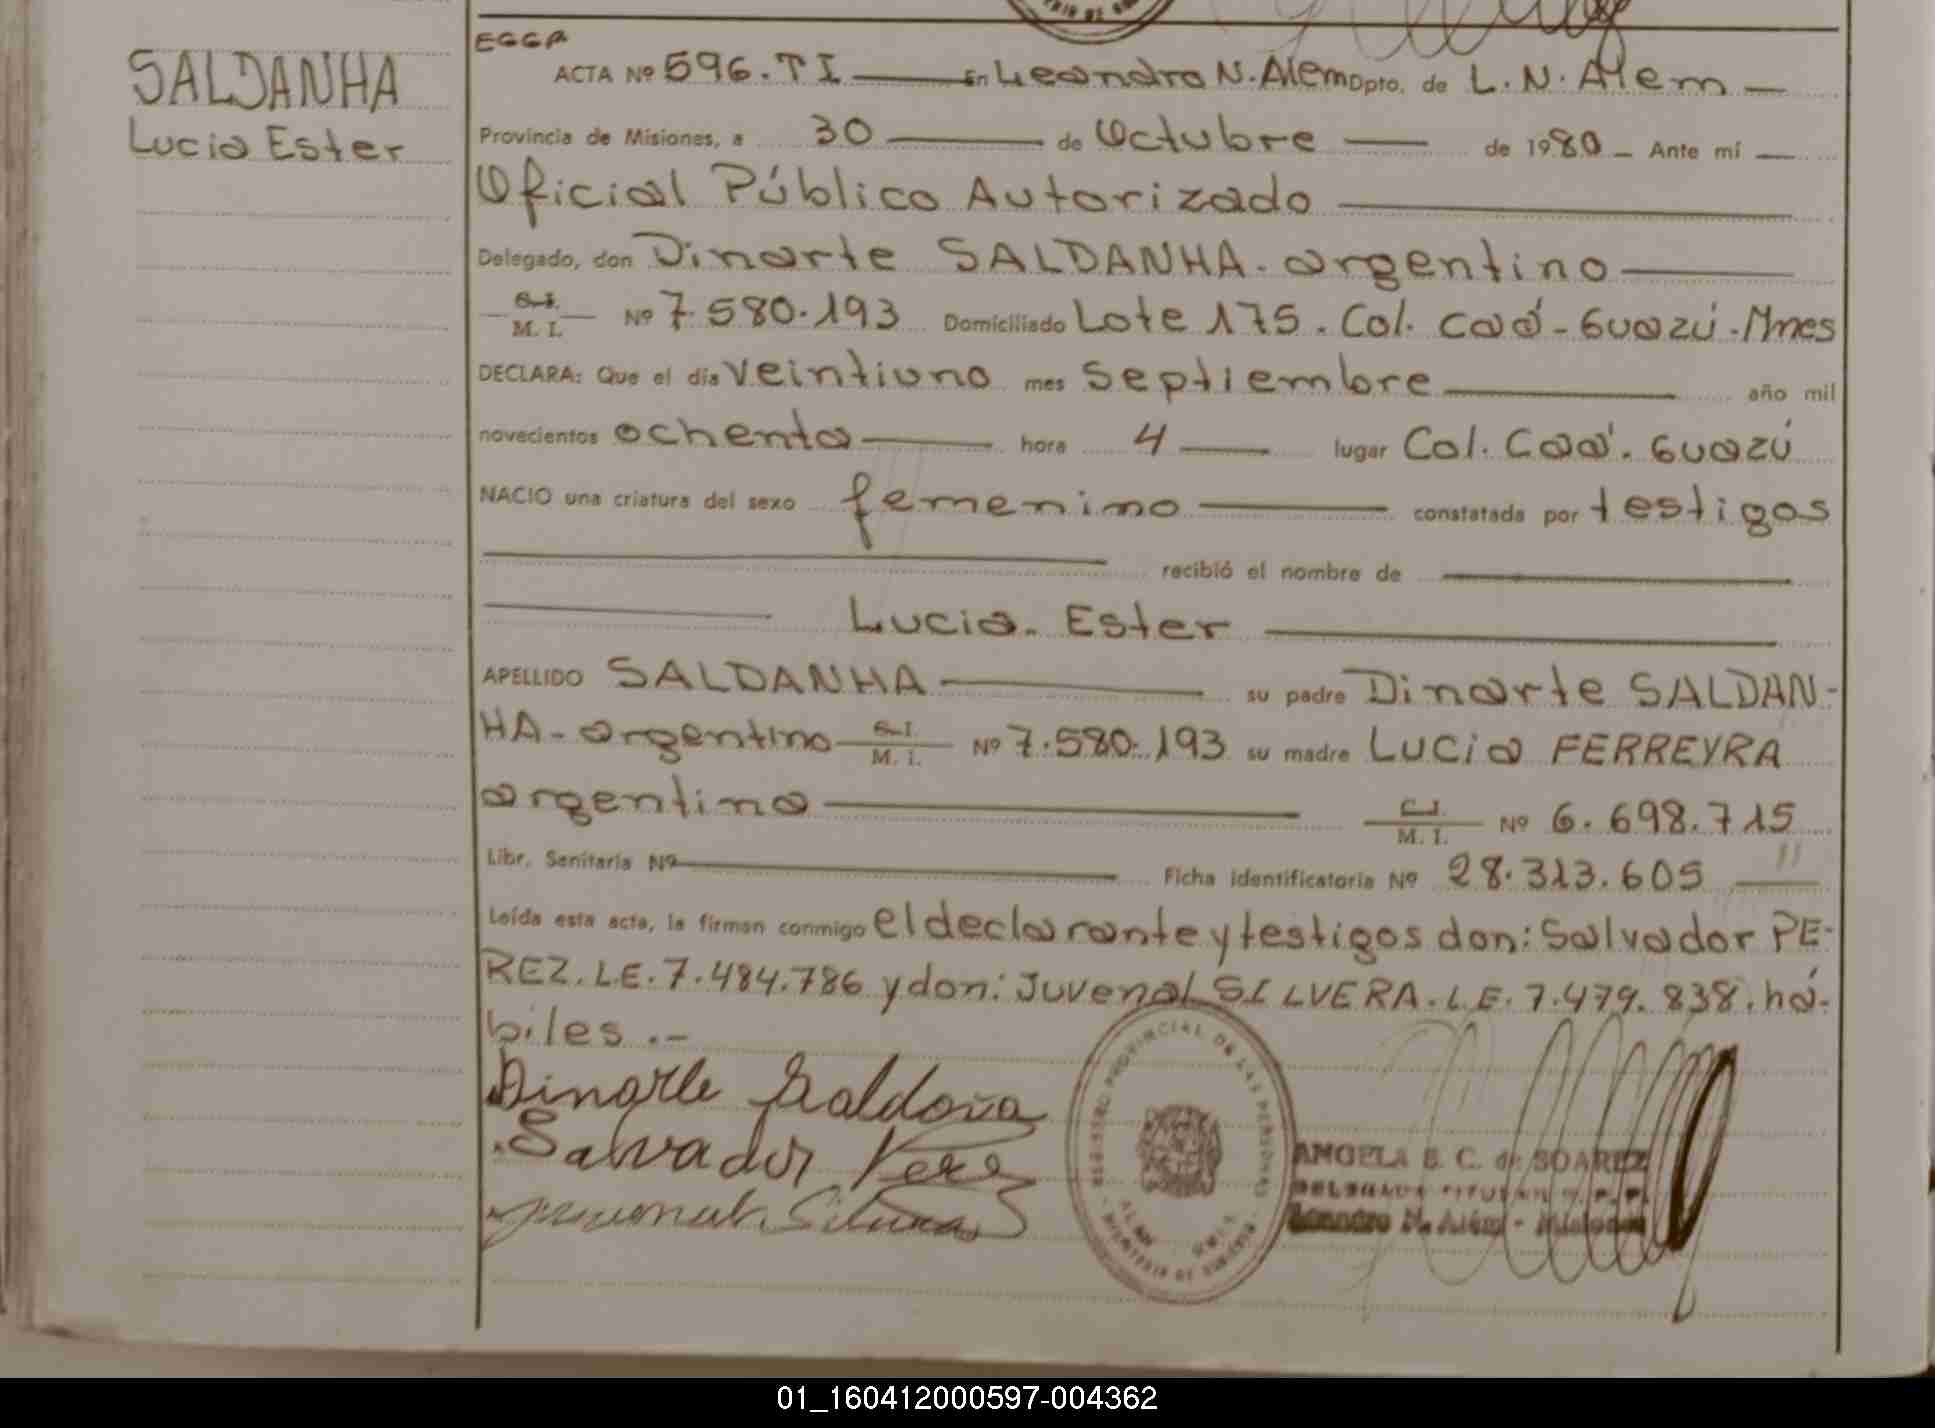 SALDANHA
Lucia Ester
EGGA
ACTA Nº 596. T I En Leandro N. Alem Dpto. de L. N. Alem
Provincia de Misiones, a 30 de Octubre de 1980 Ante mí
Oficial Público Autorizado
Delegado, don Dinarte SALDANHA. argentino
C.I. M. I. Nº 7.580.193 Domiciliado Lote 175. Col. Caá-Guazú-Mnes
DECLARA: Que el día veintiuno mes septiembre año mil
novecientos ochenta hora 4 lugar Col. Caá. Guazú
NACIO una criatura del sexo femenino constatada por testigos
recibió el nombre de
Lucia. Ester
APELLIDO SALDANHA su padre Dinarte SALDAN-
HA- argentino C.I. M. I. Nº 7.580.193 su madre Lucia FERREYRA
argentina C.I. M. I. Nº 6.698.715
Libr. Sanitaria Nº Ficha identificatoria Nº 28.313.605
Leída esta acta, la firman conmigo el declarante y testigos don: Salvador PE-
REZ. L.E. 7.484.786 y don: Juvenal SILVERA. L.E. 7.479.838. há-
biles.-
Dinarte Saldaña
Salvador Perez
Juvenal Silvera
REGISTRO PROVINCIAL DE LAS PERSONAS
MINISTERIO DE GOBIERNO
ANGELA B. C. de SOAREZ
DELEGADA TITULAR R. P. P.
Leandro N. Além - Misiones
01_160412000597-004362